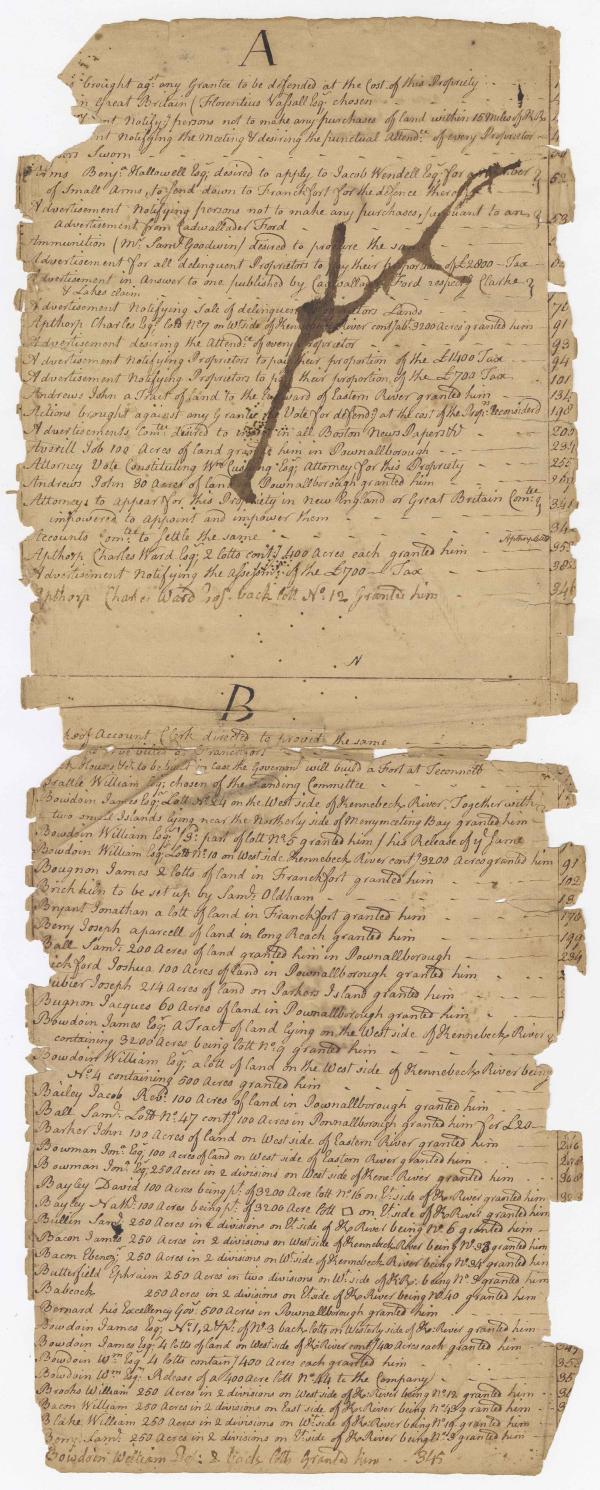 A
brought agt. any Grantee to be defended at the Cost of this Propriety
in Great Britain (Florentius Vassall Esq. chosen
Notifyg. persons not to make any purchases of land within 15 Miles of
Notifying the Meeting & desiring the punctual Attendce. of every Proprietor
Sworn
Arms Benja. Hallowell Esq. desired to apply to Jacob Wendell Esq. for a 52
of Small Arms, to send down to Franckfort for the defence
Advertisement Notifying persons not to make any purchases, pursuant to an 53
Advertisement from Cadwallader Ford
Ammunition (Mr. Saml. Goodwin) desired to procure the same
Advertisement for all delinquent Proprietors to pay their proportion of £2800 Tax
Advertisement in Answer to one published by Cadwallader Ford respectg. Clarke
& Lakes claim
Advertisement Notifying Sale of delinquent Proprietors Lands 76
Apthorp Charles Esq. Lott No. 7 on Wt. side of Kennebeck River contg. abt. 3200 Acres granted him 91
Advertisement desiring the Attendce. of every Proprietor 93
Advertisement Notifying Proprietors to pay their proportion of the £1400 Tax 94
Advertisement Notifying Proprietors to pay their proportion of the £700 Tax 101
Andrews John a Tract of Land to the Eastward of Eastern River granted him 134
Actions brought against any Grantee the Vote for defendg. at the cost of the Propry. reconsiderd 148
Advertisements Comtee. desired to in all Boston News Papers 200
Averill Job 100 Acres of land granted him in Pownallborough 234
Attorney Vote Constituting Wm. Cushing Esq. Attorney for this Propriety 255
Andrews John 80 Acres of land Pownallborough granted him
Attorney to appear for this Propriety in New England or Great Britain Comtee. 341
impowered to appoint and impower them
Accounts Comtee. to settle the same 34
Apthorp Charles Ward Esq. 2 lotts contg. 400 Acres each granted him 35
Advertisement Notifying the Assessmt. of the £700 Tax 38
Apthorp Charles Ward Esq. back lott No. 12 Granted him 346
N
B
of Account, Clerk directed to provide the same
Franckfort
Houses &c. to be built in case the Governour will build a Fort at Teconnett
Brattle William Esq. chosen of the Standing Committee
Bowdoin James Esq. Lott No. 24 on the West side of Kennebeck River, Together with
two small Islands lying near the Northerly side of Merrymeeting Bay granted him
Bowdoin William Esq. 1/3d. part of lott No. 5 granted him / his Release of ye. same
Bowdoin William Esq. Lott No. 10 on West side Kennebeck River contg. 3200 Acres granted him 91
Bougnon James 2 Lotts of land in Franckfort granted him 102
Brick kiln to be set up by Saml. Oldham 13
Bryant Jonathan a lott of land in Franckfort granted him 176
Berry Joseph a parcell of land in long Reach granted him 199
Ball Saml. 200 Acres of land granted him in Pownallborough 234
Beckford Joshua 100 Acres of land in Pownallborough granted him
Joseph 214 Acres of land on Parkers Island granted him
Bugnon Jacques 60 Acres of land in Pownallborough granted him
Bowdoin James Esq. A Tract of land lying on the West side of Kennebeck River
containing 3200 Acres being lott No. 9 granted him
Bowdoin William Esq. a lott of land on the West side of Kennebeck River being
No. 4 containing 500 Acres granted him
Bailey Jacob Revd. 100 Acres of land in Pownallborough granted him
Ball Saml. Lott No. 47 contg. 100 Acres in Pownallborough granted him for £20
Barker John 100 Acres of land on West side of Eastern River granted him
Bowman Jonn. Esq. 100 Acres of land on West side of Eastern River granted him
Bowman Jonn. Esq. 250 Acres in 2 divisions on West side of Kene. River granted him
Bayley David 100 Acres being pt. of 3200 Acre lott No. 16 on Et. side of Ke. River granted him
Bayley Nathl. 100 Acres being pt. of 3200 Acre lott □ on Et. side of Ke. River granted him
Bullin Saml. 250 Acres in 2 divisions on Et. side of Ke. River being No. 6 granted him
Bacon James 250 Acres in 2 divisions on West side of Kennebeck River being No. 33 granted him
Bacon Ebenezr. 250 Acres in 2 divisions on Wt. side of Kennebeck River being No. 34 granted him
Butterfield Ephraim 250 Acres in two divisions on Wt. side of Ke. Rr. being No. granted him
Babcock 250 Acres in 2 divisions on Et. side of Ke. River being No. 40 granted him
Bernard his Excellency Govr. 500 Acres in Pownallborough granted him
Bowdoin James Esq. No. 1, 2 & pt. of No. 3 back lotts on Westerly side of Ke. River granted him
Bowdoin James Esq. 4 lotts of land on West side of Ke. River contg. 400 Acres each granted him
Bowdoin Wm. Esq. 4 lotts containg. 400 Acres each granted him 353
Bowdoin Wm. Esq. Release of a 400 Acre lott No. 44 to the Company 35
Brooks William 250 Acres in 2 divisions on West side of Ke. River being No. 12 granted him
Bacon William 250 Acres in 2 divisions on East side of Ke. River being No. 13 granted him
Blake William 250 Acres in 2 divisions on Wt. side of Ke. River being No. 19 granted him
Berry Saml. 250 Acres in 2 divisions on Et. side of Ke. River being No. 3 granted him
Bowdoin William Esq. 2 back lotts Granted him 345